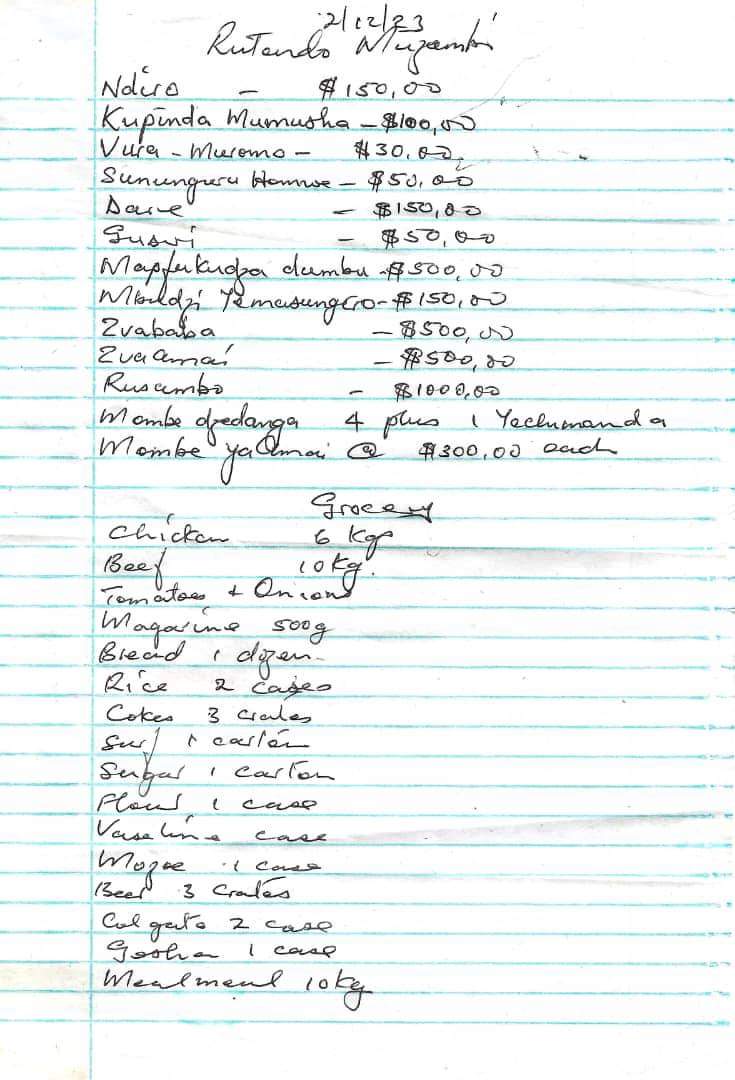 2/12/23
Rutendo Muzambi
Ndiro - $150,00
Kupinda Mumusha - $100,00
Vura - Muromo - $30,00
Sunungura Homwe - $50,00
Dare - $150,00
Guswi - $50,00
Mapfukudza dumbu - $500,00
Mbudzi Yemasungiro - $150,00
Zvababa - $500,00
Zvaamai - $500,00
Rusambo - $1000,00
Mombe dzedanga 4 plus 1 Yechimanda
Mombe yaAmai @ $300,00 each
Grocery
Chicken 6 Kgs
Beef 10kg.
Tomatoes + Onions
Magarine 500g
Bread 1 dozen
Rice 2 cases
Cokes 3 crates
Surf 1 carton
Sugar 1 carton
Flour 1 case
Vaseline case
Mazoe 1 case
Beer 3 Crates
Colgate 2 case
Geisha 1 case
Mealmeal 10kg